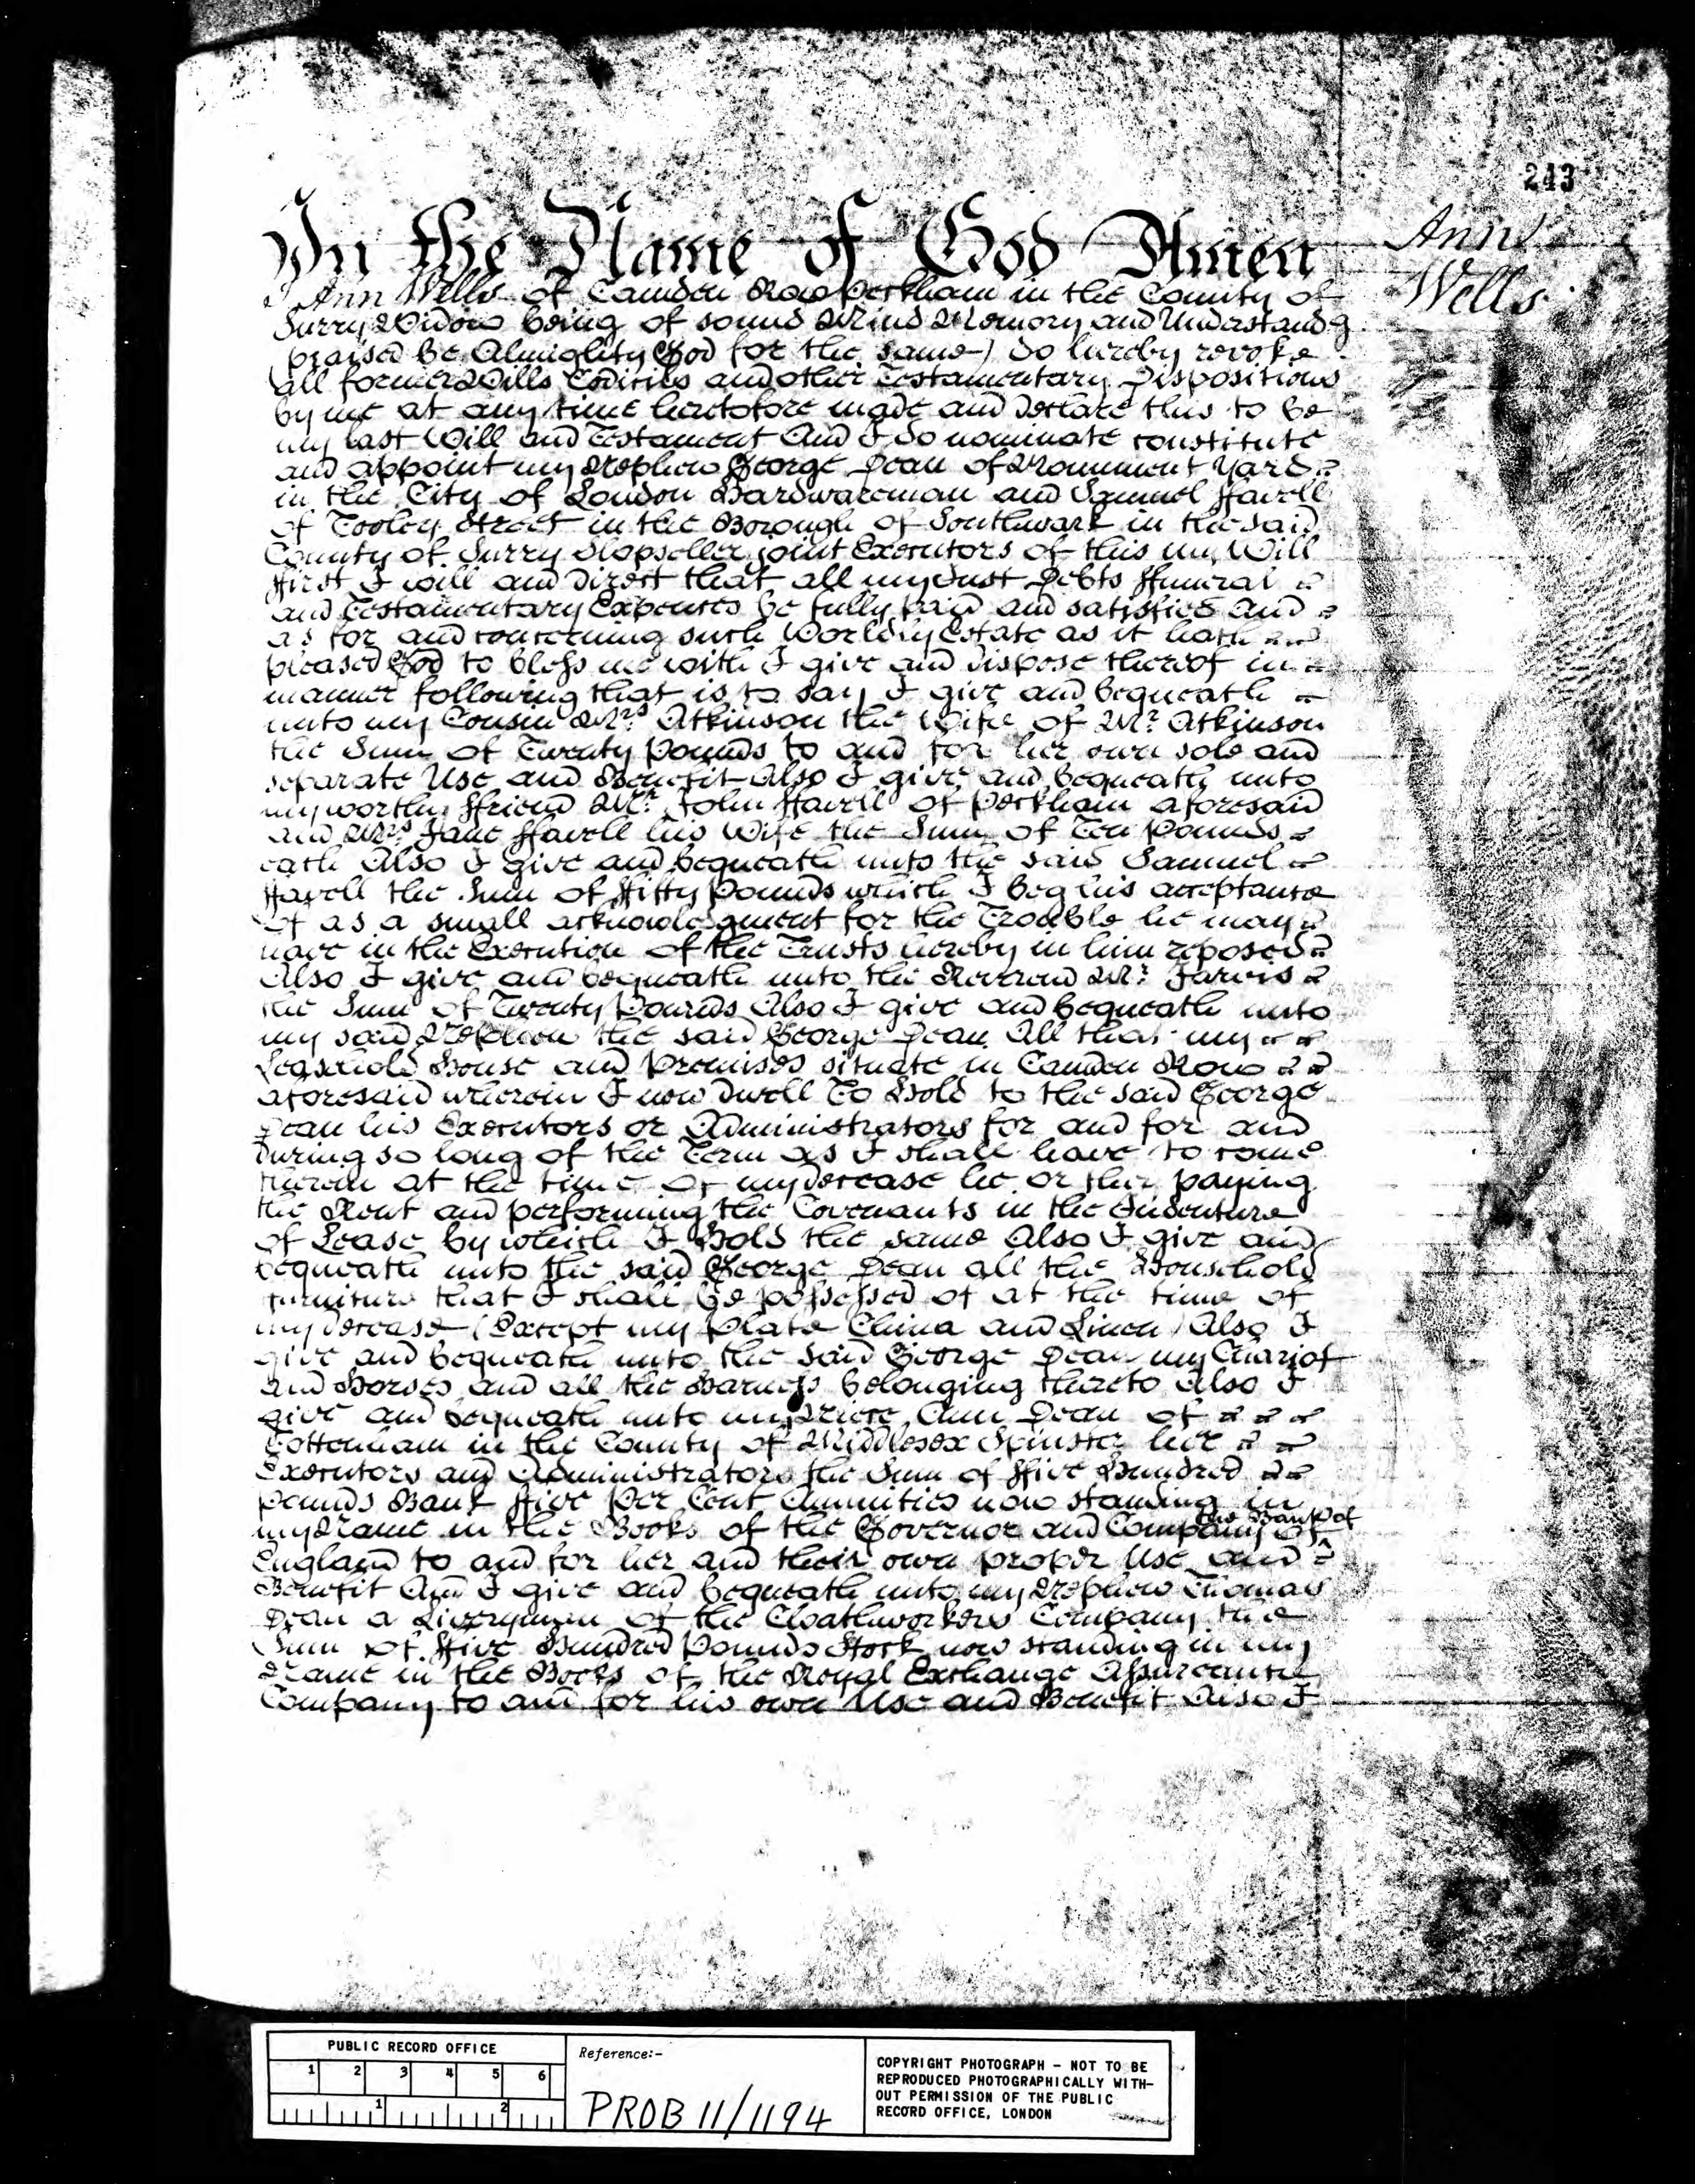 243
In the Name of God Amen
Ann
Wells
I Ann Wells of Camden Row Peckham in the County of
Surry Widow being of sound Mind Memory and Understandg
praised be Almighty God for the same) do hereby revoke
all former Wills Codicils and other Testamentary Dispositions
by me at any time heretofore made and declare this to be
my last Will and Testament And I do nominate constitute
and appoint my Nephew George Dean of Monument Yard
in the City of London Hardwareman and Samuel ffavell
of Tooley Street in the Borough of Southwark in the said
County of Surry Slopseller joint Executors of this my Will
ffirst I will and direct that all my Just Debts ffuneral
and Testamentary Expences be fully paid and satisfied And
as for and concerning such Worldly Estate as it hath
pleased God to bless me with I give and dispose thereof in
manner following that is to say I give and bequeath
unto my Cousin Mrs. Atkinson the Wife of Mr. Atkinson
the Sum of Twenty Pounds to and for her own sole and
separate Use and Benefit Also I give and bequeath unto
my worthy ffriend Mr. John ffavell of Peckham aforesaid
and Mrs. Jane ffavell his Wife the Sum of Ten Pounds
each Also I give and bequeath unto the said Samuel
ffavell the Sum of ffifty Pounds which I beg his acceptance
of as a small acknowledgment for the Trouble he may
have in the Execution of the Trusts hereby in him reposed
Also I give and bequeath unto the Reverend Mr. Jarvis
the Sum of Twenty Pounds Also I give and bequeath unto
my said Nephew the said George Dean All that my
Leasehold House and Premises situate in Camden Row
aforesaid wherein I now dwell To Hold to the said George
Dean his Executors or Administrators for and for and
during so long of the Term as I shall have to come
therein at the time of my decease he or they paying
the Rent and performing the Covenants in the Indenture
of Lease by which I Hold the same Also I give and
bequeath unto the said George Dean all the Household
furniture that I shall be possessed of at the time of
my decease (Except my Plate China and Linen) Also I
give and bequeath unto the said George Dean my Chariot
and Horses and all the Harness belonging thereto Also I
give and bequeath unto my Niece Ann Dean of
Tottenham in the County of Middlesex Spinster her
Executors and Administrators the Sum of ffive Hundred
pounds Bank ffive Per Cent Annuities now standing in
my Name in the Books of the Governor and Company of the Bank of
England to and for her and their own proper Use and
Benefit And I give and bequeath unto my Nephew Thomas
Dean a Liveryman of the Cloathworkers Company the
Sum of ffive Hundred Pounds Stock now standing in my
Name in the Books of the Royal Exchange Assurance
Company to and for his own Use and Benefit Also I
PUBLIC RECORD OFFICE
1 2 3 4 5 6
1 2
Reference:-
PROB 11/1194
COPYRIGHT PHOTOGRAPH - NOT TO BE
REPRODUCED PHOTOGRAPHICALLY WITH-
OUT PERMISSION OF THE PUBLIC
RECORD OFFICE, LONDON